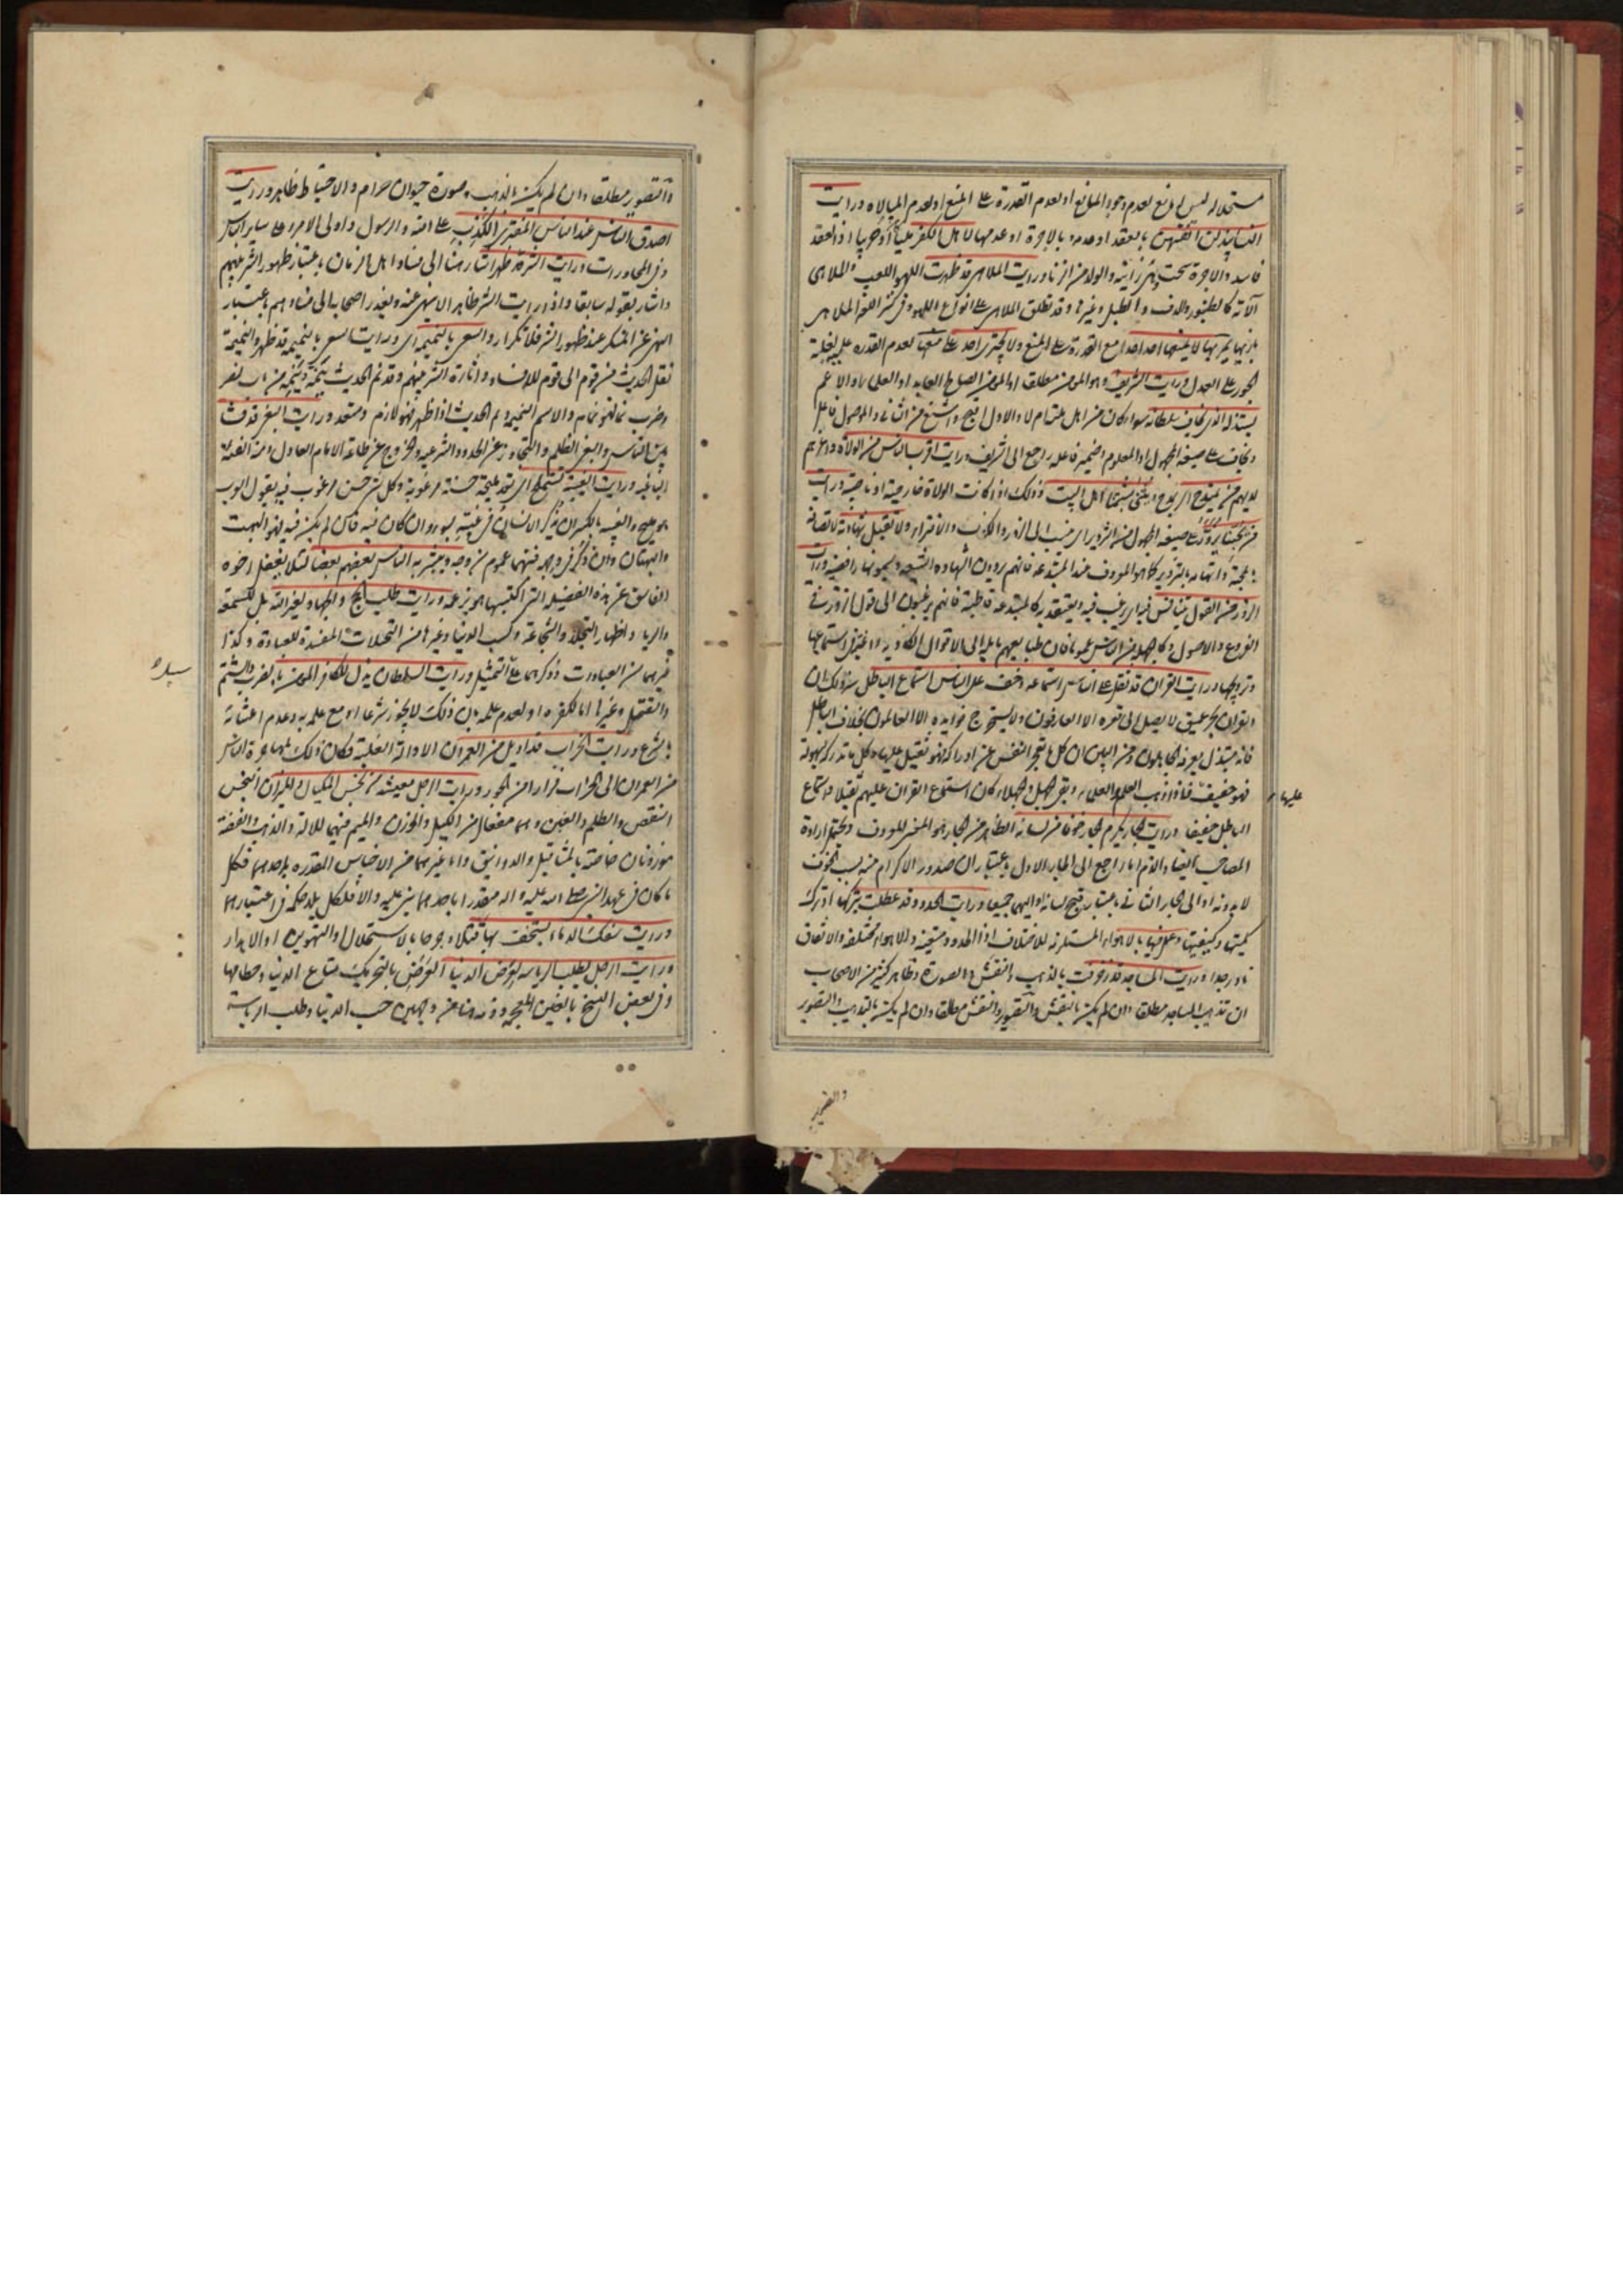 مستحلا له ليس له مانع لعدم وجود المانع او لعدم القدرة على المنع او لعدم المبالاه ورايت
النساء يبذلن انفسهن بالعقد او عدمه بالاجرة او عدمها لاهل الكفر اذ العقد
فاسد والاجرة سحت وهي زانية والولد من الزنا ورايت الملاهي قد ظهرت اللهو اللعب والملاهي
آلاته كالطنبور والدف والطبل وغيرها وقد تطلق الملاهي على انواع اللهو وفي كنز اللغة الملاهي
يمر بها لا يمنعها احد احدا مع القدرة على المنع ولا يجترى احد على منعها لعدم القدره عليه لغلبة
الجور على العدل ورايت الشريف وهو المؤمن مطلقا او المؤمن الصالح العابد او العلماء والاعم
يستذله الذي يخاف سلطانه سواء كان من اهل ملته ام لا والاول اقبح واشنع من الثاني والموصول فاعل
ويخاف على صيغة المجهول او المعلوم وضمير فاعله راجع الى الشريف ورايت اقرب الناس من الولاة واعزهم
لديهم من يمتدح اي يمدح او يثنى بشتمنا اهل البيت وذلك اذا كانت الولاة خارجية او ناصبية ورايت
من يحبنا يزور على صيغة المجهول من التزوير اي ينسب الى الزور والكذب والافتراء ولا تقبل شهادته لاتصافه
بمحبتنا واتهامه بالتزوير كما هو المعروف عند المبتدعة فانهم يردون شهادة الشيعه ويسمونها رافضية ورايت
الزور من القول يتنافس فيه اي يرغب فيه ويعتقد به كالمبتدعة قاطبة فانهم يرغبون الى قول الزور في
الفروع والاصول وكالجهله من الناس عموما فان طبايعهم مايله الى الاقوال الكاذبه راغبة في استماعها
وترويجها ورايت القران قد ثقل على الناس استماعه وخف على الناس استماع الباطل سر ذلك ان
القران بحر عميق لا يصل الى قعره الا العارفون ولا يستخرج فوايده الا العالمون بخلاف الباطل
فانه مبتذل يعرفه الجاهلون ومن البين ان كل ما تعجز النفس عن ادراكه فهو ثقيل عليها وكل ما تدركه بسهولة
فهو خفيف فاذا ذهب العلم والعلماء وبقى الجهل والجهلاء كان استماع القران عليهم ثقيلا واستماع
عليها
الباطل خفيفا ورايت الجار يكرم الجار خوفا من لسانه الظاهر من الجار هو المعنى المعروف ويحتمل ارادة
المصاحب ايضا والذم اما راجع الى الجار الاول باعتبار ان صدور الاكرام منه بسبب الخوف
لا بدونه او الى الجار الثاني باعتبار قبح لسانه او اليهما جميعا ورايت الحدود قد عطلت بتركها او ترك
كميتها وكيفيتها وعمل فيها بالاهواء المستلزمة للاختلاف اذ الحدود متعينة والاهواء مختلفة والاتفاق
نادر جدا ورايت المساجد قد زخرفت بالذهب والنقش والصورة وظاهر كثير من الاصحاب
ان تذهيب المساجد مطلقا وان لم يكن بالنقش والتصوير والنقش مطلقا وان لم يكن بالتذهيب والتصوير
والتصوير
والتصوير مطلقا وان لم يكن بالذهب وصورة حيوان حرام والاحتياط ظاهر ورايت
اصدق الناس عند الناس المفتري الكذب على الله والرسول واولى الامر وعلى ساير الناس
وفي المحاورات ورايت الشر قد ظهر اشار هنا الى فساد اهل الزمان باعتبار ظهور الشر بينهم
واشار بقوله سابقا واذا رايت الشر ظاهرا لا ينهى عنه ويعذر اصحابه الى فسادهم باعتبار
النهي عن المنكر عند ظهور الشر فلا تكرار والسعي بالنميمة اي ورايت السعي بالنميمة قد ظهر والنميمة
نقل الحديث من قوم الى قوم للافساد واثارة الشر بينهم وقد نم الحديث ينمه وينمه من باب نصر
وضرب نما فهو نمام والاسم النميمه ونم الحديث اذا ظهر فهو لازم ومتعد ورايت البغي قد فشا
بين الناس والبغي الظلم والتجاوز عن الحدود الشرعيه والخروج عن طاعة الامام العادل ومنه الفئة
الباغيه ورايت الغيبة تستملح اي تعد مليحة حسنة مرغوبة وكل شيء حسن مرغوب فيه يقول العرب
هو مليح والغيبه بالكسر ان يذكر الانسان في غيبته بسوء وان كان فيه فان لم يكن فيه فهو البهت
والبهتان وان ذكر في وجهه فبينهما عموم من وجه ويبشر به الناس بعضهم بعضا لئلا يغفل اخوه
الفاسق عن هذه الفضيله التي اكتسبها هو بزعمه ورايت طلب الحج والجهاد لغير الله بل للسمعة
والرياء واظهار التجلد والشجاعة وكسب الدنيا وغيرها من التخيلات المفسدة للعبادة وكذا
غيرهما من العبادات وذكرهما على التمثيل ورايت السلطان يذل للكافر المؤمن بالضرب والشتم
والقتل وغيرها اما لكفره او لعدم علمه بان ذلك لا يجوز شرعا او مع علمه به وعدم اعتنائه
بالشرع ورايت الخراب قد اديل من العمران الادالة الغلبة وكان ذلك لمهاجرة الناس
من العمران الى الخراب فرارا من الجور ورايت الرجل معيشته من بخس المكيال والميزان البخس
النقص والظلم والغبن وهما مفعال من الكيل والوزن والميم فيهما للالة والذهب والفضة
موزونان خاصة بالمثاقيل والدوانيق واما غيرهما من الاجناس المقدره باحدهما فكل
ما كان في عهد النبي صلى الله عليه واله مقدرا باحدهما بنى عليه والا فلكل بلد حكمه في اعتبارهما
ورايت سفك الدماء يستخف بها قتلا وجرحا بالاستحلال او التهوين او الابدار
ورايت الرجل يطلب الرياسه لعرض الدنيا العرض بالتحريك متاع الدنيا وحطامها
وفي بعض النسخ بالغين المعجمه وذمه هنا من وجهين حب الدنيا وطلب الرياسة